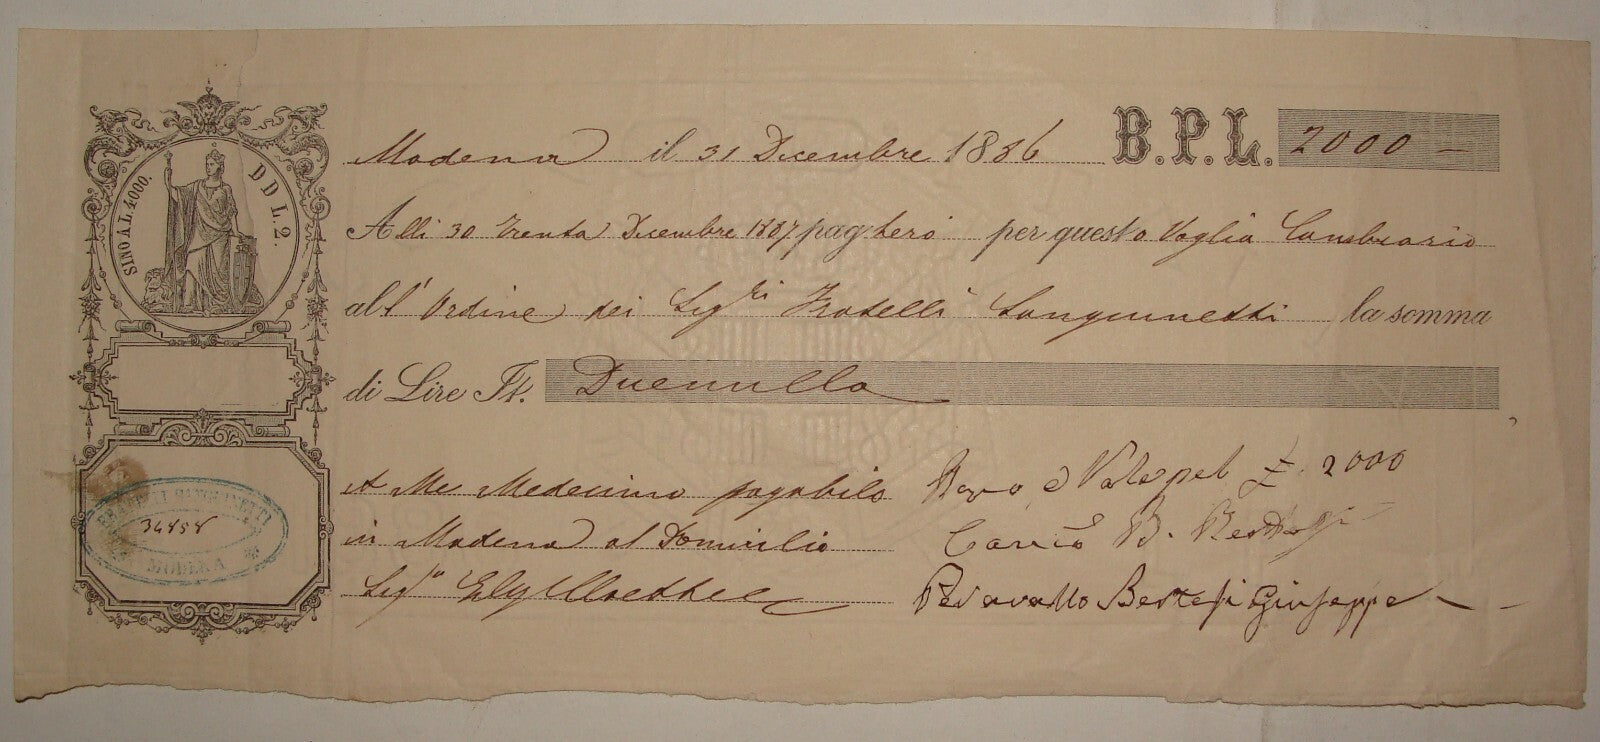 SINO AL 4000.
DD L. 2.
Modena il 31 Dicembre 1886 B.P.L. 2000 —
Alli 30 Trenta Dicembre 1887 pagherò per questo Vaglia Cambiario
all' Ordine dei Sigri Fratelli Sanguinetti la somma
di Lire It. Duemilla
A Me Medesimo pagabile
in Modena al Domicilio
Sigr
£. 2000
B.
Per avallo Bertesi Giuseppe
FRATELLI SANGUINETTI
34858
MODENA